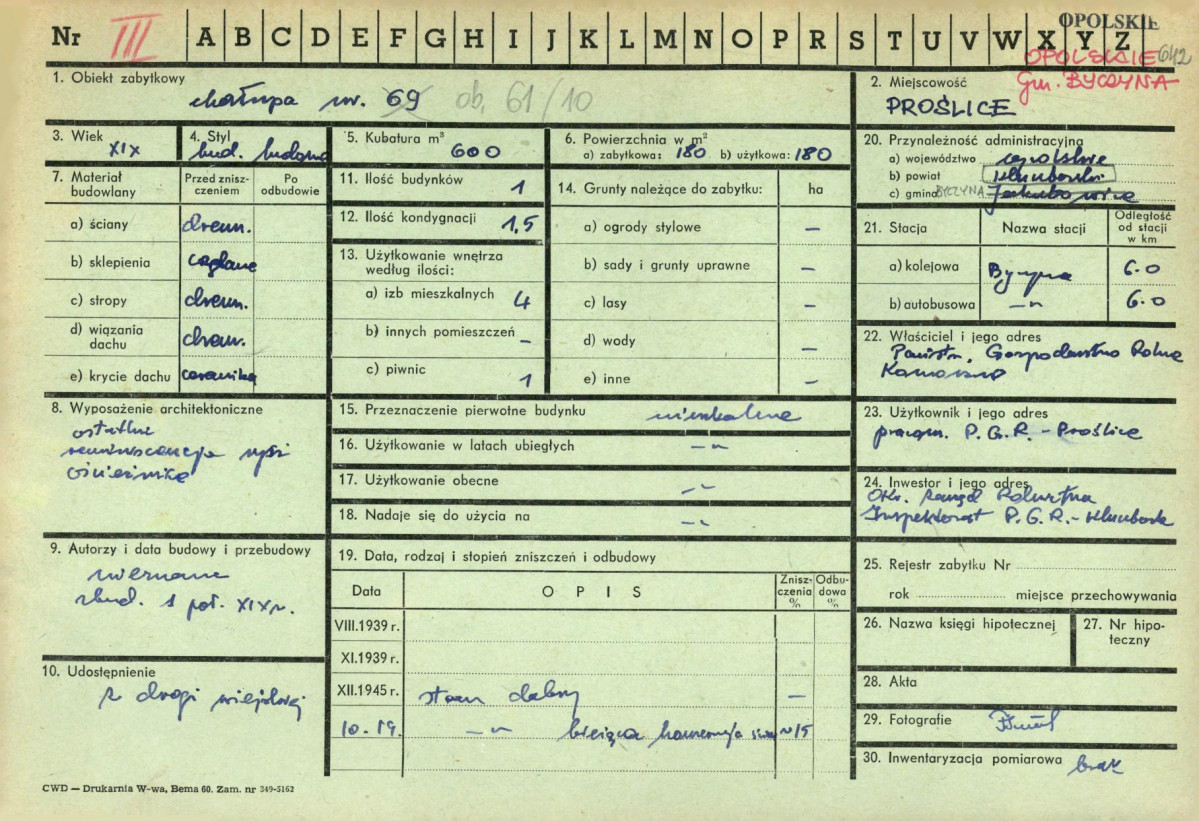 OPOLSKIE
Nr III A B C D E F G H I J K L M N O P R S T U V W X Y Z
OPOLSKIE 642
Gm. BYCZYNA
1. Obiekt zabytkowy
chałupa nr. 69 ob. 61/10
2. Miejscowość
PROŚLICE
3. Wiek
XIX
4. Styl
bud. ludowe
5. Kubatura m³
600
6. Powierzchnia w m²
a) zabytkowa: 180 b) użytkowa: 180
20. Przynależność administracyjna
a) województwo opolskie
b) powiat kluczborski
c) gmina BYCZYNA Jakubowice
7. Materiał budowlany
Przed zniszczeniem
Po odbudowie
a) ściany drewn.
b) sklepienia ceglane
c) stropy drewn.
d) wiązania dachu drewn.
e) krycie dachu ceramika
11. Ilość budynków 1
12. Ilość kondygnacji 1,5
13. Użytkowanie wnętrza według ilości:
a) izb mieszkalnych 4
b) innych pomieszczeń –
c) piwnic 1
14. Grunty należące do zabytku: ha
a) ogrody stylowe –
b) sady i grunty uprawne –
c) lasy –
d) wody –
e) inne –
21. Stacja Nazwa stacji Odległość od stacji w km
a) kolejowa Byczyna 6.0
b) autobusowa –"– 6.0
22. Właściciel i jego adres
Państw. Gospodarstwo Rolne
8. Wyposażenie architektoniczne
15. Przeznaczenie pierwotne budynku mieszkalne
16. Użytkowanie w latach ubiegłych –"–
17. Użytkowanie obecne –"–
18. Nadaje się do użycia na –"–
23. Użytkownik i jego adres
pracown. P.G.R. - Proślice
24. Inwestor i jego adres
Inspektorat P.G.R. - Kluczbork
9. Autorzy i data budowy i przebudowy
nieznane
zbud. 1 poł. XIX w.
19. Data, rodzaj i stopień zniszczeń i odbudowy
Data OPIS Zniszczenia % Odbudowa %
VIII.1939 r.
XI.1939 r.
XII.1945 r. stan dobry –
10.19. –"– bieżąca ~15
25. Rejestr zabytku Nr
rok miejsce przechowywania
26. Nazwa księgi hipotecznej
27. Nr hipoteczny
10. Udostępnienie
z drogi wiejskiej
28. Akta
29. Fotografie
30. Inwentaryzacja pomiarowa brak
CWD — Drukarnia W-wa, Bema 60. Zam. nr 349-5162